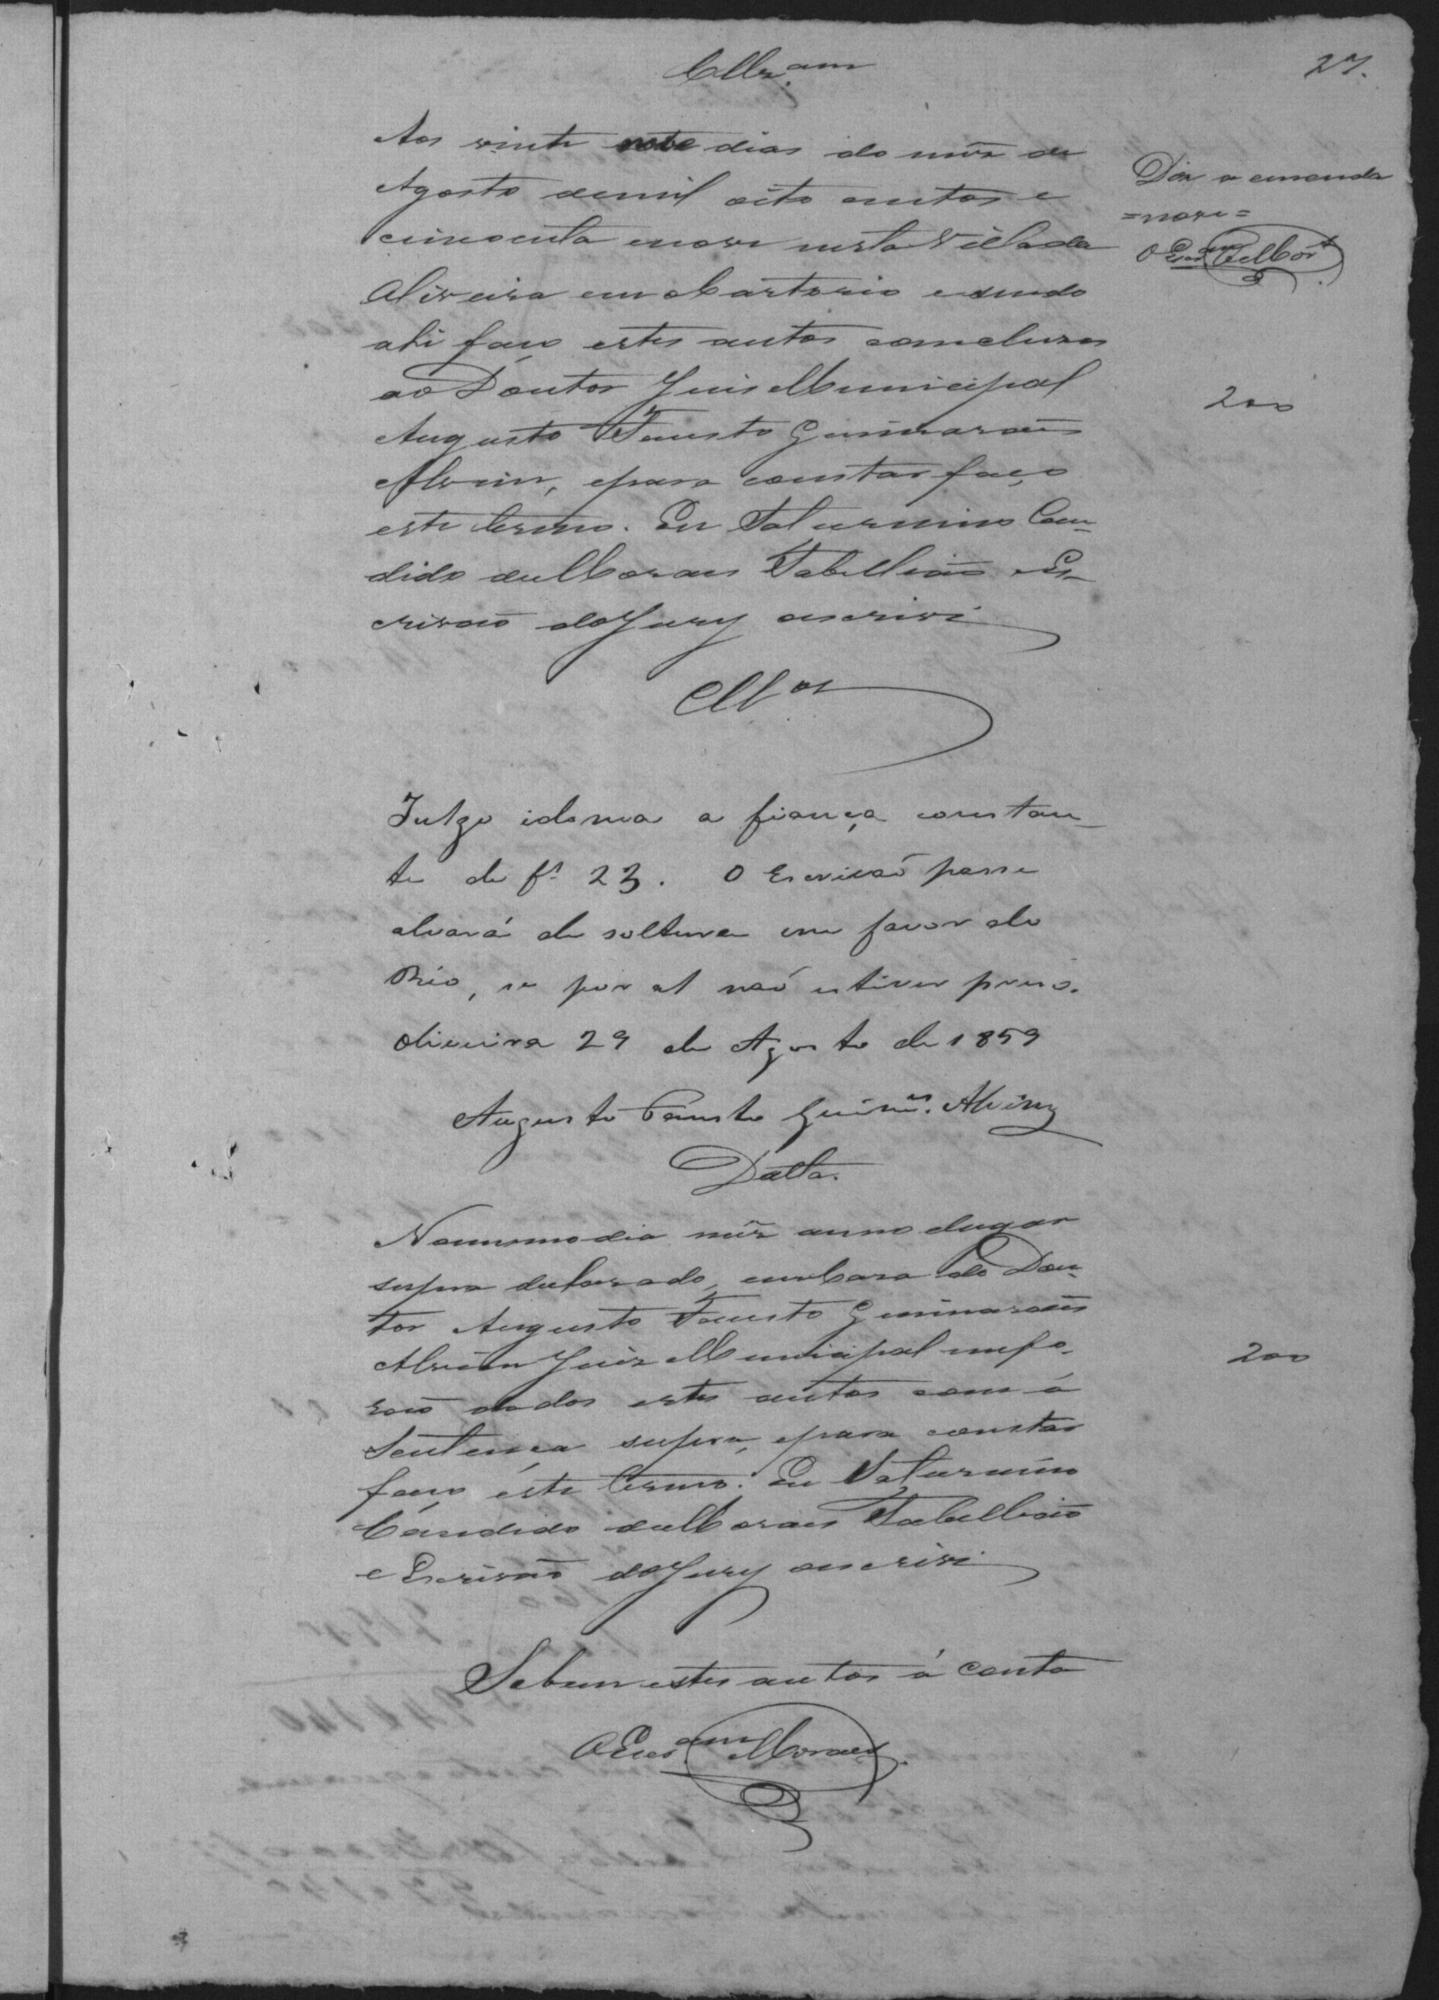 27.
Cllz.am
Aos vinte nove dias do mês de
Agosto demil oito centos e
cincoenta enove nesta Villa da
Oliveira em o Cartorio e sendo
ahi faço estes autos concluzos
ao Doutor Juis Municipal
Augusto Fausto Guimaraẽs
Alvim, epara constar faço
este termo. Eu Saturnino Can-
dido de Moraes Tabellião e Es-
crivaõ do Jury o escrivi
Cllos
Diz a emenda
=nove=
O Escam
200
Julgo idonea a fiança constan-
te de fs 23. O Escrivaõ passe
alvará de soltura em favor do
Reo, se por al naõ estiver preso.
Oliveira 29 de Agosto de 1859
Augusto Fausto Guimes. Alvim
Datta.
No mesmo dia mês anno elugar
supra declarado, em Caza do Dou-
tor Augusto Fausto Guimaraẽs
Alvim Juiz Municipal me fo-
raõ dados estes autos com á
Sentença supra, epara constar
faço este termo. Eu Saturnino
Candido de Moraes Tabellião
e Escrivaõ do Jury o escrivi
200
Sebem estes autos á conta
O Escam Moraes.